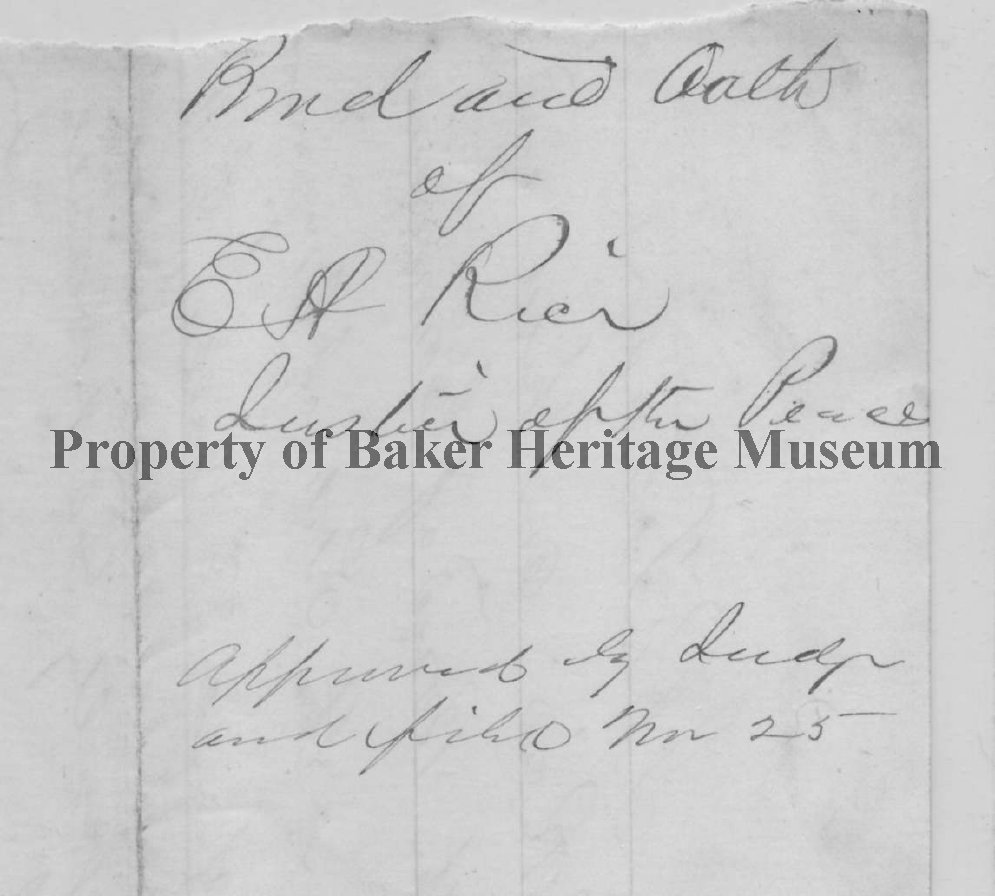 Bond and Oath
of
E A Rice
Justice of the Peace
Property of Baker Heritage Museum
Approved by Judge
and filed Nov 25